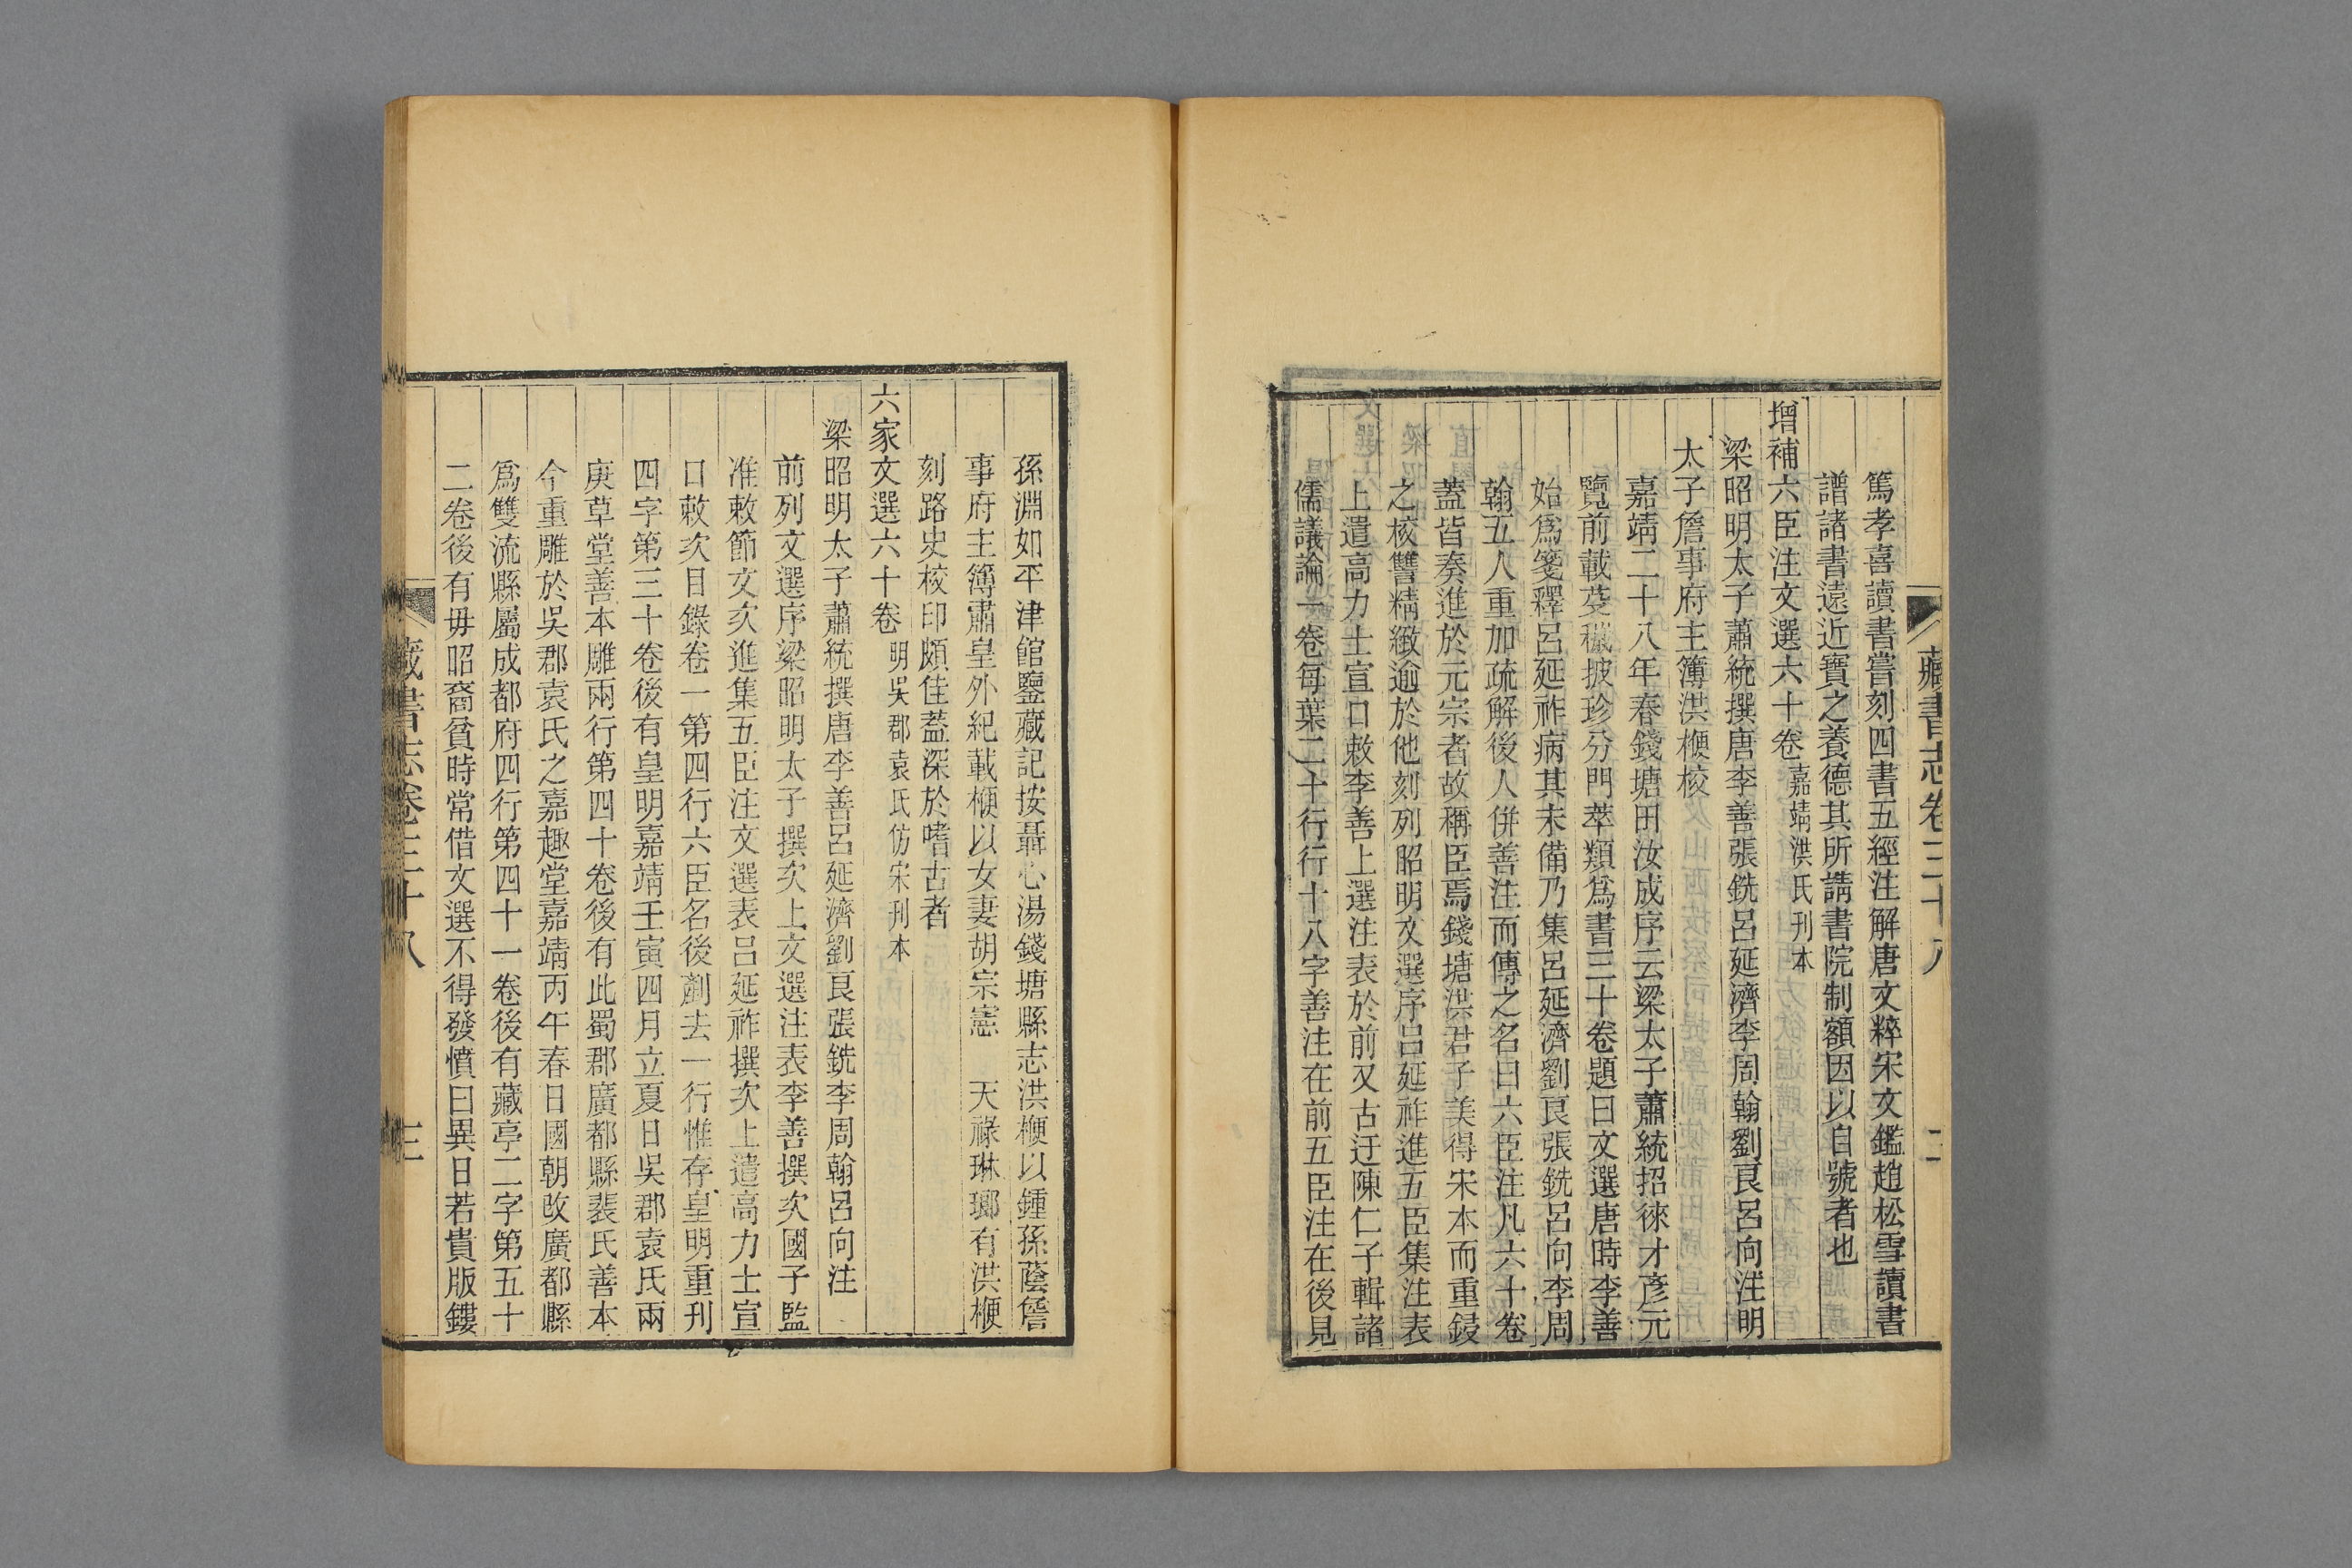 藏書志卷三十八
二
篤孝喜讀書嘗刻四書五經注解唐文粹宋文鑑趙松雪讀書
譜諸書遠近寶之養德其所講書院制額因以自號者也
增補六臣注文選六十卷 嘉靖洪氏刊本
梁昭明太子蕭統撰唐李善張銑呂延濟李周翰劉良呂向注明
太子詹事府主簿洪楩校
嘉靖二十八年春錢塘田汝成序云梁太子蕭統招徠才彥元
覽前載芟穢披珍分門萃類爲書三十卷題曰文選唐時李善
始爲箋釋呂延祚病其未備乃集呂延濟劉良張銑呂向李周
翰五人重加疏解後人併善注而傳之名曰六臣注凡六十卷
蓋皆奏進於元宗者故稱臣焉錢塘洪君子美得宋本而重鋟
之核讐精緻逾於他刻列昭明文選序呂延祚進五臣集注表
上遣高力士宣口敕李善上選注表於前又古迂陳仁子輯諸
儒議論一卷每葉二十行行十八字善注在前五臣注在後見
孫淵如平津館鑒藏記按聶心湯錢塘縣志洪楩以鍾孫蔭詹
事府主簿肅皇外紀載楩以女妻胡宗憲　天祿琳瑯有洪楩
刻路史校印頗佳蓋深於嗜古者
六家文選六十卷 明吳郡袁氏仿宋刊本
梁昭明太子蕭統撰唐李善呂延濟劉良張銑李周翰呂向注
前列文選序梁昭明太子撰次上文選注表李善撰次國子監
准敕節文次進集五臣注文選表呂延祚撰次上遣高力士宣
口敕次目錄卷一第四行六臣名後劗去一行惟存皇明重刊
四字第三十卷後有皇明嘉靖壬寅四月立夏日吳郡袁氏兩
庚草堂善本雕兩行第四十卷後有此蜀郡廣都縣裴氏善本
今重雕於吳郡袁氏之嘉趣堂嘉靖丙午春日國朝改廣都縣
爲雙流縣屬成都府四行第四十一卷後有藏亭二字第五十
二卷後有毋昭裔貧時常借文選不得發憤曰異日若貴版鏤
藏書志卷三十八
三